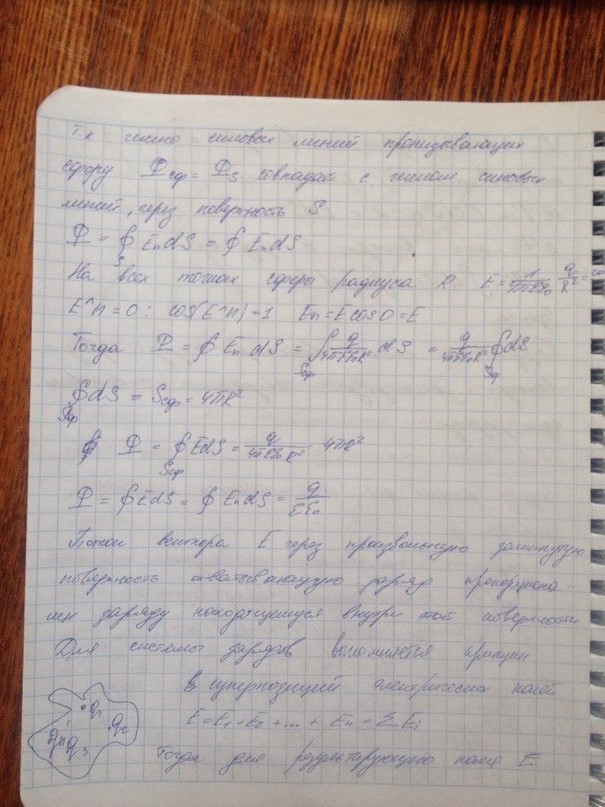 Т.к число силовых линий пронизывающих
сферу Фсф = Фs совпадает с числом силовых
линий, через поверхность S
Ф = ∮ EndS = ∮ EndS
S
На всех точках сферы радиуса R E = 1/4πεε0 q/R² =
E^n = 0 : cos(E^n) = 1 En = E cos 0 = E
Тогда Ф = ∮ En dS = ∫Sсф q/4πεε0R² dS = q/4πεε0R² ∮Sсф dS
∮Sсф dS = Sсф = 4πR²
Ф = ∮Sсф EdS = q/4πεε0R² 4πR²
Ф = ∮ EdS = ∮ EndS = q/εε0
Поток вектора E через произвольную замкнутую
поверхность охватывающую заряд пропорциона-
лен заряду находящемуся внутри этой поверхности
Для системы зарядов выполняется принцип
суперпозиций электрических полей
E = E1 + E2 + ... + En = ΣEi
q1 q2
qn q3
Тогда для результирующего поля E